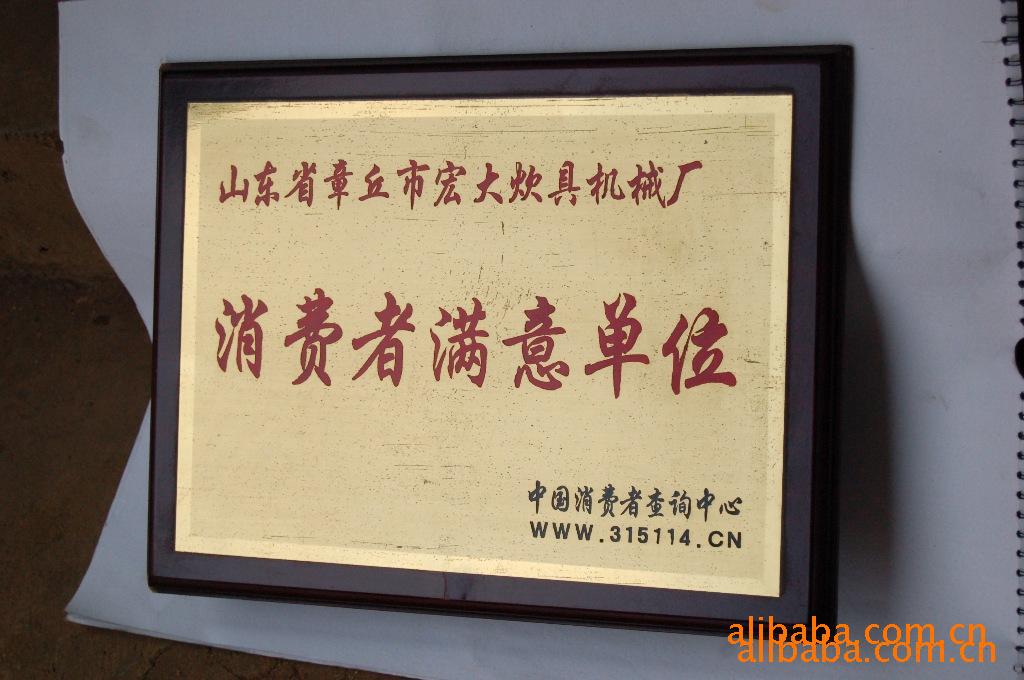 山东省章丘市宏大炊具机械厂
消费者满意单位
中国消费者查询中心
WWW.315114.CN
alibaba.com.cn
alibaba.com.cn